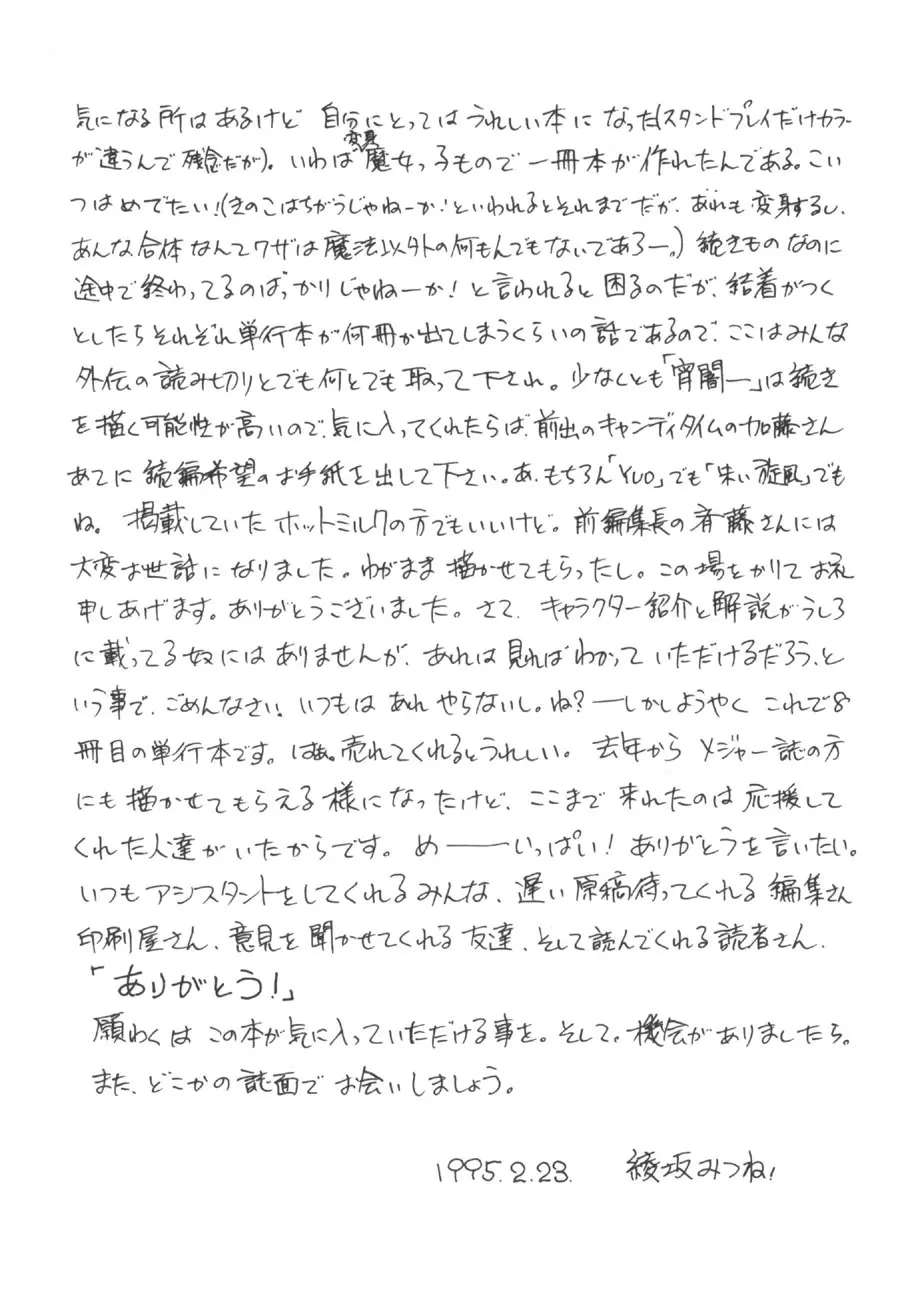 気になる所はあるけど 自分にとってはうれしい本になった(スタンドプレイだけカラー
が違うんで残念だが)。いわば変身魔女っ子もので一冊本が作れたんである。こい
つはめでたい!(きのこはちがうじゃねーか!といわれるとそれまでだが、あれも変身するし、
あんな合体なんてワザは魔法以外の何もんでもないであろー。)続きものなのに
途中で終わってるのばっかりじゃねーか!と言われると困るのだが、結着がつく
としたらそれぞれ単行本が何冊か出てしまうくらいの話であるので、ここはみんな
外伝の読み切りとでも何とでも取って下され。少なくとも「宵闇―」は続き
を描く可能性が高いので、気に入ってくれたらば、前出のキャンディタイムの加藤さん
あてに続編希望のお手紙を出して下さい。あ、もちろん「YUO」でも「朱い旋風」でも
ね。 掲載していたホットミルクの方でもいいけど。前編集長の斉藤さんには
大変お世話になりました。わがまま描かせてもらったし。この場をかりてお礼
申しあげます。ありがとうございました。さて、キャラクター紹介と解説がうしろ
に載ってる奴にはありませんが、あれは見ればわかっていただけるだろう、と
いう事で、ごめんなさい。いつもはあれやらないし。ね?―しかしようやく これで8
冊目の単行本です。はぁ。売れてくれるとうれしい。去年から メジャー誌の方
にも描かせてもらえる様になったけど、ここまで来れたのは応援して
くれた人達がいたからです。め――いっぱい!ありがとうを言いたい。
いつもアシスタントをしてくれるみんな、遅い原稿待ってくれる編集さん
印刷屋さん、意見を聞かせてくれる友達、そして読んでくれる読者さん、
「ありがとう!」
願わくはこの本が気に入っていただける事を。そして。機会がありましたら。
また、どこかの誌面でお会いしましょう。
1995.2.23. 綾坂みつね!